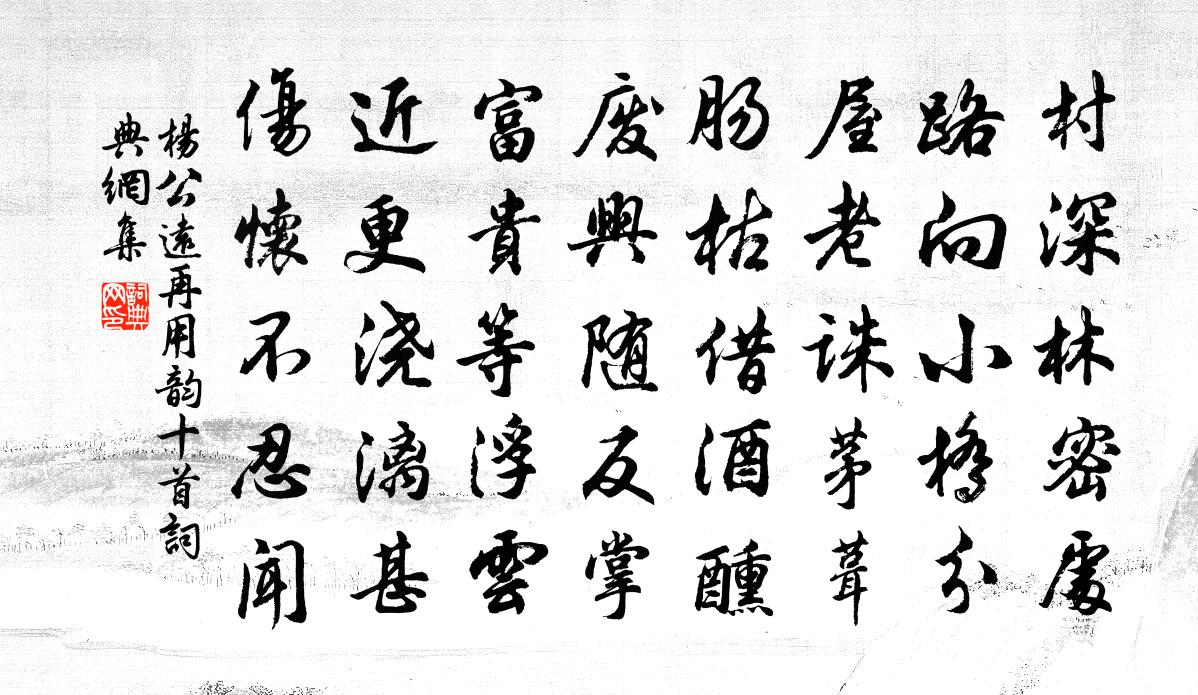 村深林密處
路向小橋分
屋老誅茅葺
肠枯借酒醺
废興随反掌
富貴等浮雲
近更浇漓甚
傷懷不忍聞
楊公遠再用韵十首詞
典網集
詞典
网印